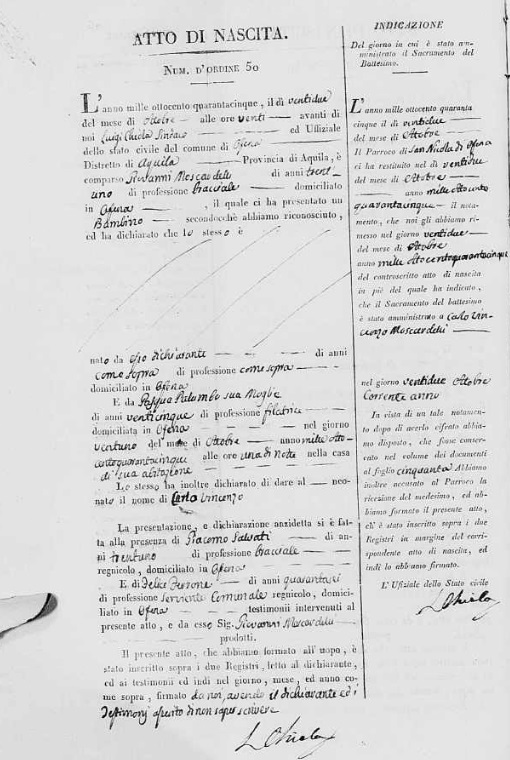 ATTO DI NASCITA.
NUM. D'ORDINE 50
L'anno mille ottocento quarantacinque, il dì ventidue
del mese di Ottobre alle ore venti avanti di
noi Luigi Chiola Sindaco ed Uffiziale
dello stato civile del comune di Ofena
Distretto di Aquila Provincia di Aquila, è
comparso Giovanni Moscardelli di anni trent'
uno di professione bracciale domiciliato
in Ofena, il quale ci ha presentato un
Bambino secondocchè abbiamo riconosciuto,
ed ha dichiarato che lo stesso è
nato da esso dichiarante di anni
come sopra di professione come sopra
domiciliato in Ofena
E da Palumbo sua Moglie
di anni venticinque di professione filatrice
domiciliata in Ofena nel giorno
ventuno del mese di Ottobre anno mille otto-
centoquarantacinque alle ore una di notte nella casa
di sua abitazione
Lo stesso ha inoltre dichiarato di dare al neo-
nato il nome di Carlo Vincenzo
La presentazione, e dichiarazione anzidetta si è fat-
ta alla presenza di Giacomo Salvati di an-
ni trentuno di professione bracciale
regnicolo, domiciliato in Ofena
E di Felice di anni quarantasei
di professione Serviente Comunale regnicolo, domici-
liato in Ofena testimonii intervenuti al
presente atto, e da esso Sig. Giovanni Moscardelli
prodotti.
Il presente atto, che abbiamo formato all'uopo, è
stato inscritto sopra i due Registri, letto al dichiarante,
ed ai testimonii ed indi nel giorno, mese, ed anno co-
me sopra, firmato da noi, avendo il dichiarante ed i
testimonj asserito di non saper scrivere
L Chiola
INDICAZIONE
Del giorno in cui è stato am-
ministrato il Sacramento del
Battesimo.
L'anno mille ottocento quaranta
cinque il dì ventidue
del mese di Ottobre
Il Parroco di San Nicola di Ofena
ci ha restituito nel dì ventidue
del mese di Ottobre
anno mille ottocento
quarantacinque il nota-
mento, che noi gli abbiamo ri-
messo nel giorno ventidue
del mese di Ottobre
anno mille ottocentoquarantacinque
del controscritto atto di nascita
in piè del quale ha indicato,
che il Sacramento del battesimo
è stato amministrato a Carlo Vin-
cenzo Moscardelli
nel giorno ventidue Ottobre
Corrente anno
In vista di un tale notamento
dopo di averlo cifrato abbia-
mo disposto, che fosse conser-
vato nel volume dei documenti
al foglio cinquanta Abbiamo
inoltre accusato al Parroco la
ricezione del medesimo, ed ab-
biamo formato il presente atto,
ch'è stato inscritto sopra i due
Registri in margine del corri-
spondente atto di nascita, ed
indi lo abbiamo firmato.
L'Ufiziale dello Stato civile
L Chiola